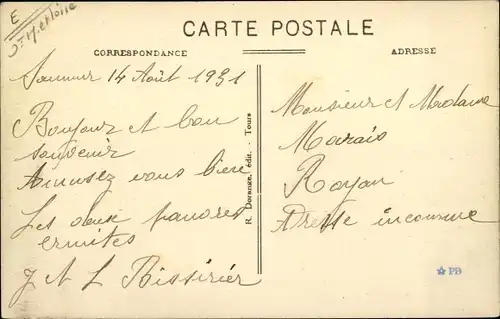 E
CARTE POSTALE
CORRESPONDANCE
ADRESSE
Saumur 14 Août 1931
Bonjour et bon
souvenir
Amusez vous bien
Les deux pauvres
ermites
J et L Bissirier
R. Dorange, édit. - Tours
Monsieur et Madame
Marais
Royan
Adresse inconnue
PD